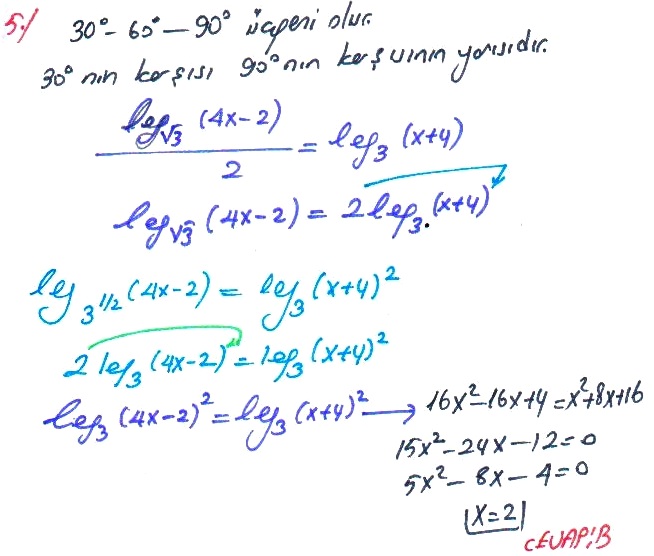 5-/ 30° - 60° - 90° üçgeni olur.
30° nin karşısı 90° nın karşısının yarısıdır.
log√3 (4x-2) / 2 = log₃ (x+4)
log√3 (4x-2) = 2 log₃ (x+4)
log 3^1/2 (4x-2) = log₃ (x+4)²
2 log₃ (4x-2) = log₃ (x+4)²
log₃ (4x-2)² = log₃ (x+4)² → 16x²-16x+4 = x²+8x+16
15x²-24x-12=0
5x²-8x-4=0
x=2
CEVAP: B